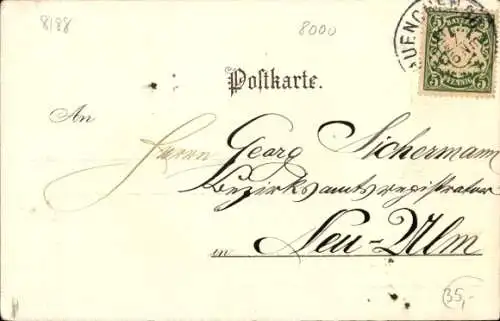 8/88
8000
MUENCHEN
5 BAYERN 5
5 PFENNIG 5
Postkarte.
An
Herrn Georg Sichermann
Bezirksamtsregistrator
in Neu-Ulm
35,-